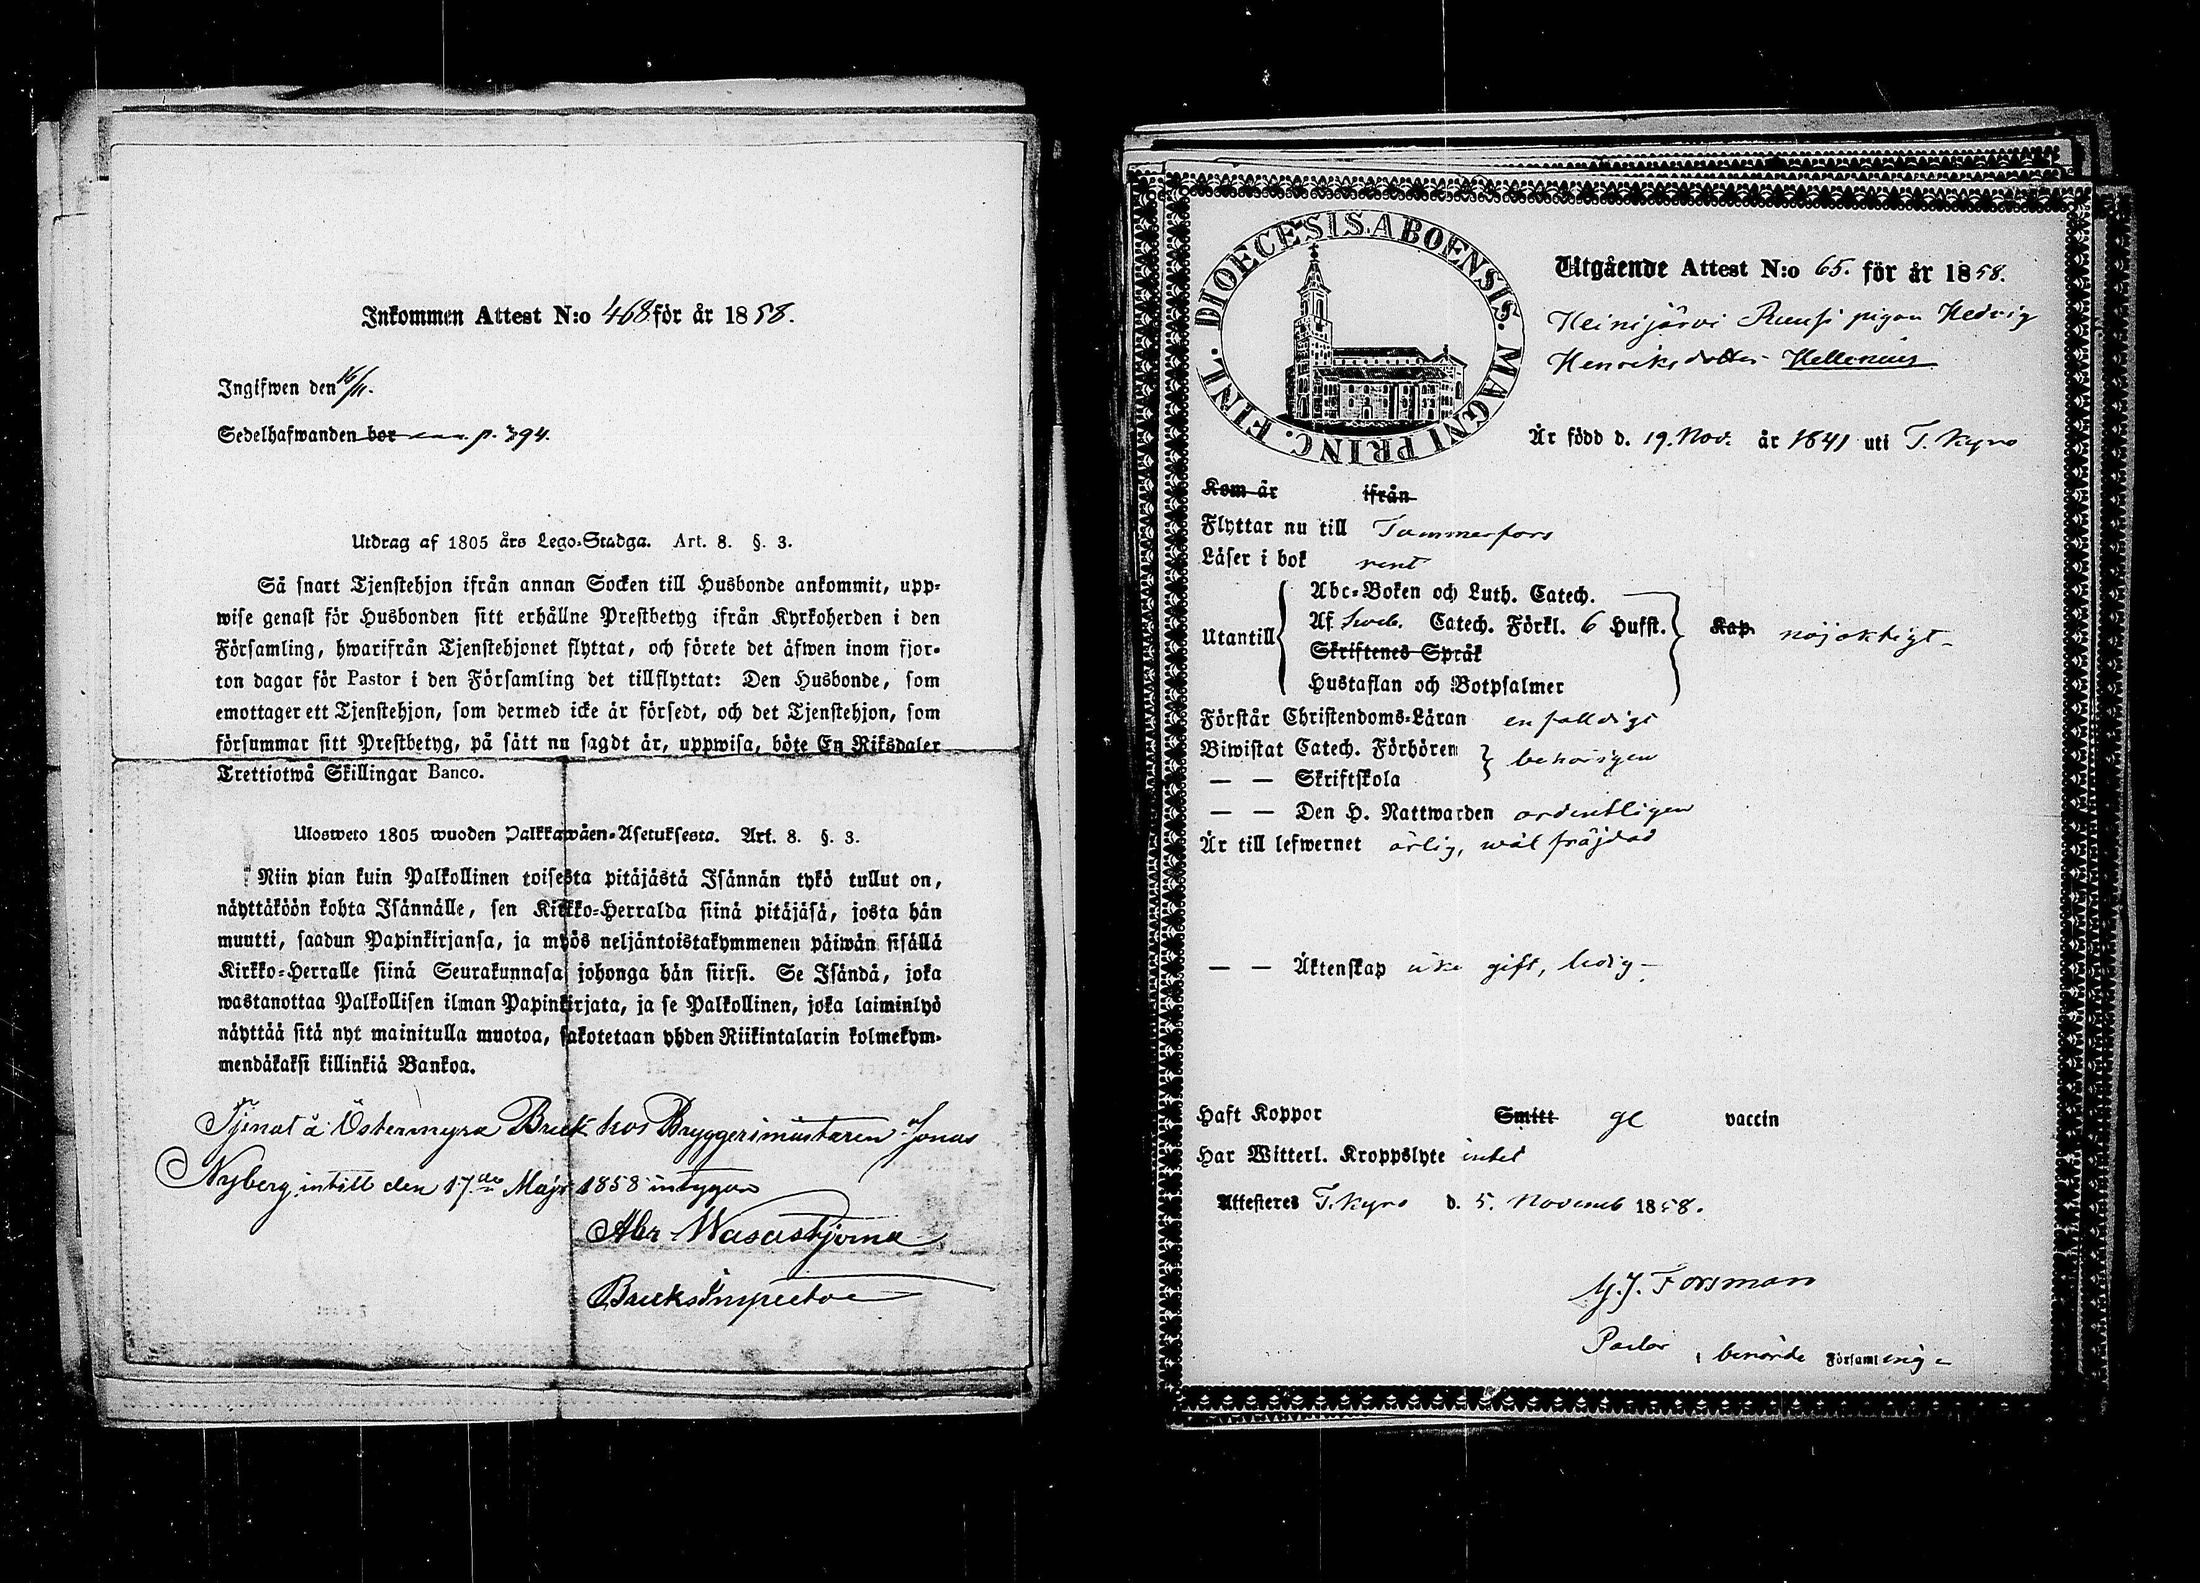 Inkommen Attest N:o 468 för år 1858.
Ingifwen den 16/11.
Sedelhafwanden bor p. 394.
Utdrag af 1805 års Lego-Stadga. Art. 8. §. 3.
Så snart Tjenstehjon ifrån annan Socken till Husbonde ankommit, upp-
wise genast för Husbonden sitt erhållne Prestbetyg ifrån Kyrkoherden i den
Församling, hwarifrån Tjenstehjonet flyttat, och förete det äfwen inom fjor-
ton dagar för Pastor i den Församling det tillflyttat: Den Husbonde, som
emottager ett Tjenstehjon, som dermed icke är försedt, och det Tjenstehjon, som
försummar sitt Prestbetyg, på sätt nu sagdt är, uppwisa, böte En Riksdaler
Trettiotwå Skillingar Banco.
Ulosweto 1805 wuoden Palkkawäen-Asetuksesta. Art. 8. §. 3.
Niin pian kuin Palkollinen toisesta pitäjästä Isännän tykö tullut on,
näyttäköön kohta Isännälle, sen Kirkko-Herralda siinä pitäjäsä, josta hän
muutti, saadun Papinkirjansa, ja myös neljäntoistakymmenen päiwän sisällä
Kirkko-Herralle siinä Seurakunnasa johonga hän siirsi. Se Isändä, joka
wastanottaa Palkollisen ilman Papinkirjata, ja se Palkollinen, joka laiminlyö
näyttää sitä nyt mainitulla muotoa, sakotetaan yhden Riikintalarin kolmekym-
mendäkaksi killinkiä Bankoa.
Tjenat å Östermyra Bruk hos Bryggerimästaren Jonas
Nyberg intill den 17de Maji 1858 intygar
Abr Wasastjerna
BruksInspector
DIOECESIS ABOENSIS. MAGNI PRINC. FINL.
Utgående Attest N:o 65. för år 1858.
Heinijärvi Ruusi pigan Hedvig
Henriksdotter Hellenius
Är född d. 19. Nov. år 1841 uti T. Kyro
Kom år ifrån
Flyttar nu till Tammerfors
Läser i bok rent
Utantill
Abc-Boken och Luth. Catech.
Af Sveb. Catech. Förkl. 6 Hufst. Kap. nöjaktigt
Skriftenes Språk
Hustaflan och Botpsalmer
Förstår Christendoms-Läran enfaldigt
Biwistat Catech. Förhören behörigen
— — Skriftskola
— — Den H. Nattwarden ordentligen
Är till lefwernet ärlig, wäl fräjdad
— — Äktenskap icke gift, ledig
Haft Koppor Smitt ge vaccin
Har Witterl. Kroppslyte intet
Attesteres T. Kyro d. 5. Novemb 1858.
G. J. Forsman
Pastor i berörde Församling